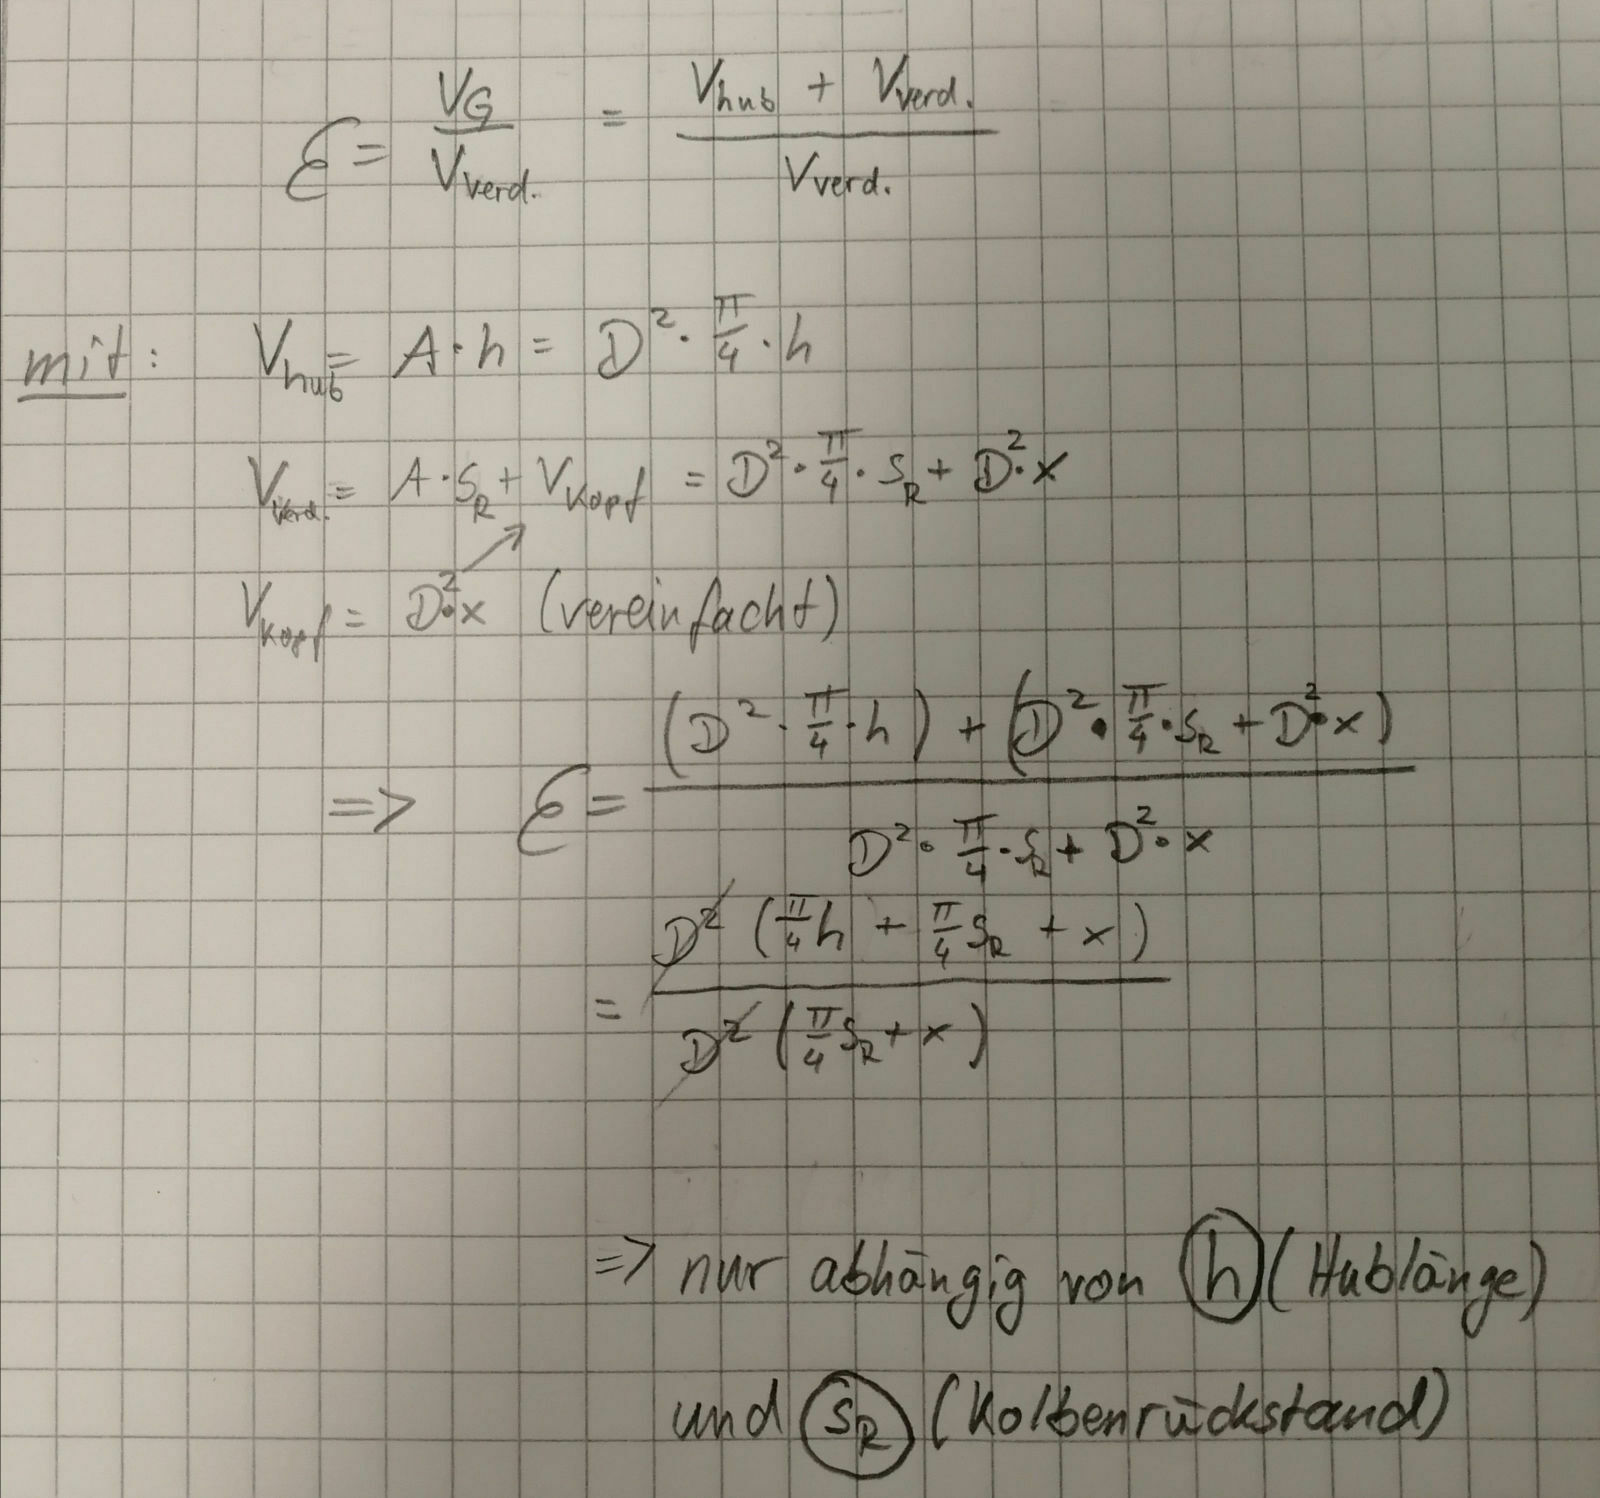 ε = V_G / V_verd. = (V_hub + V_verd.) / V_verd.
mit: V_hub = A · h = D² · π/4 · h
V_verd. = A · S_R + V_Kopf = D² · π/4 · S_R + D² · x
V_Kopf = D² · x (vereinfacht)
=> ε = ((D² · π/4 · h) + (D² · π/4 · S_R + D² · x)) / (D² · π/4 · S_R + D² · x)
= D² (π/4 h + π/4 S_R + x) / D² (π/4 S_R + x)
=> nur abhängig von h (Hublänge)
und S_R (Kolbenrückstand)